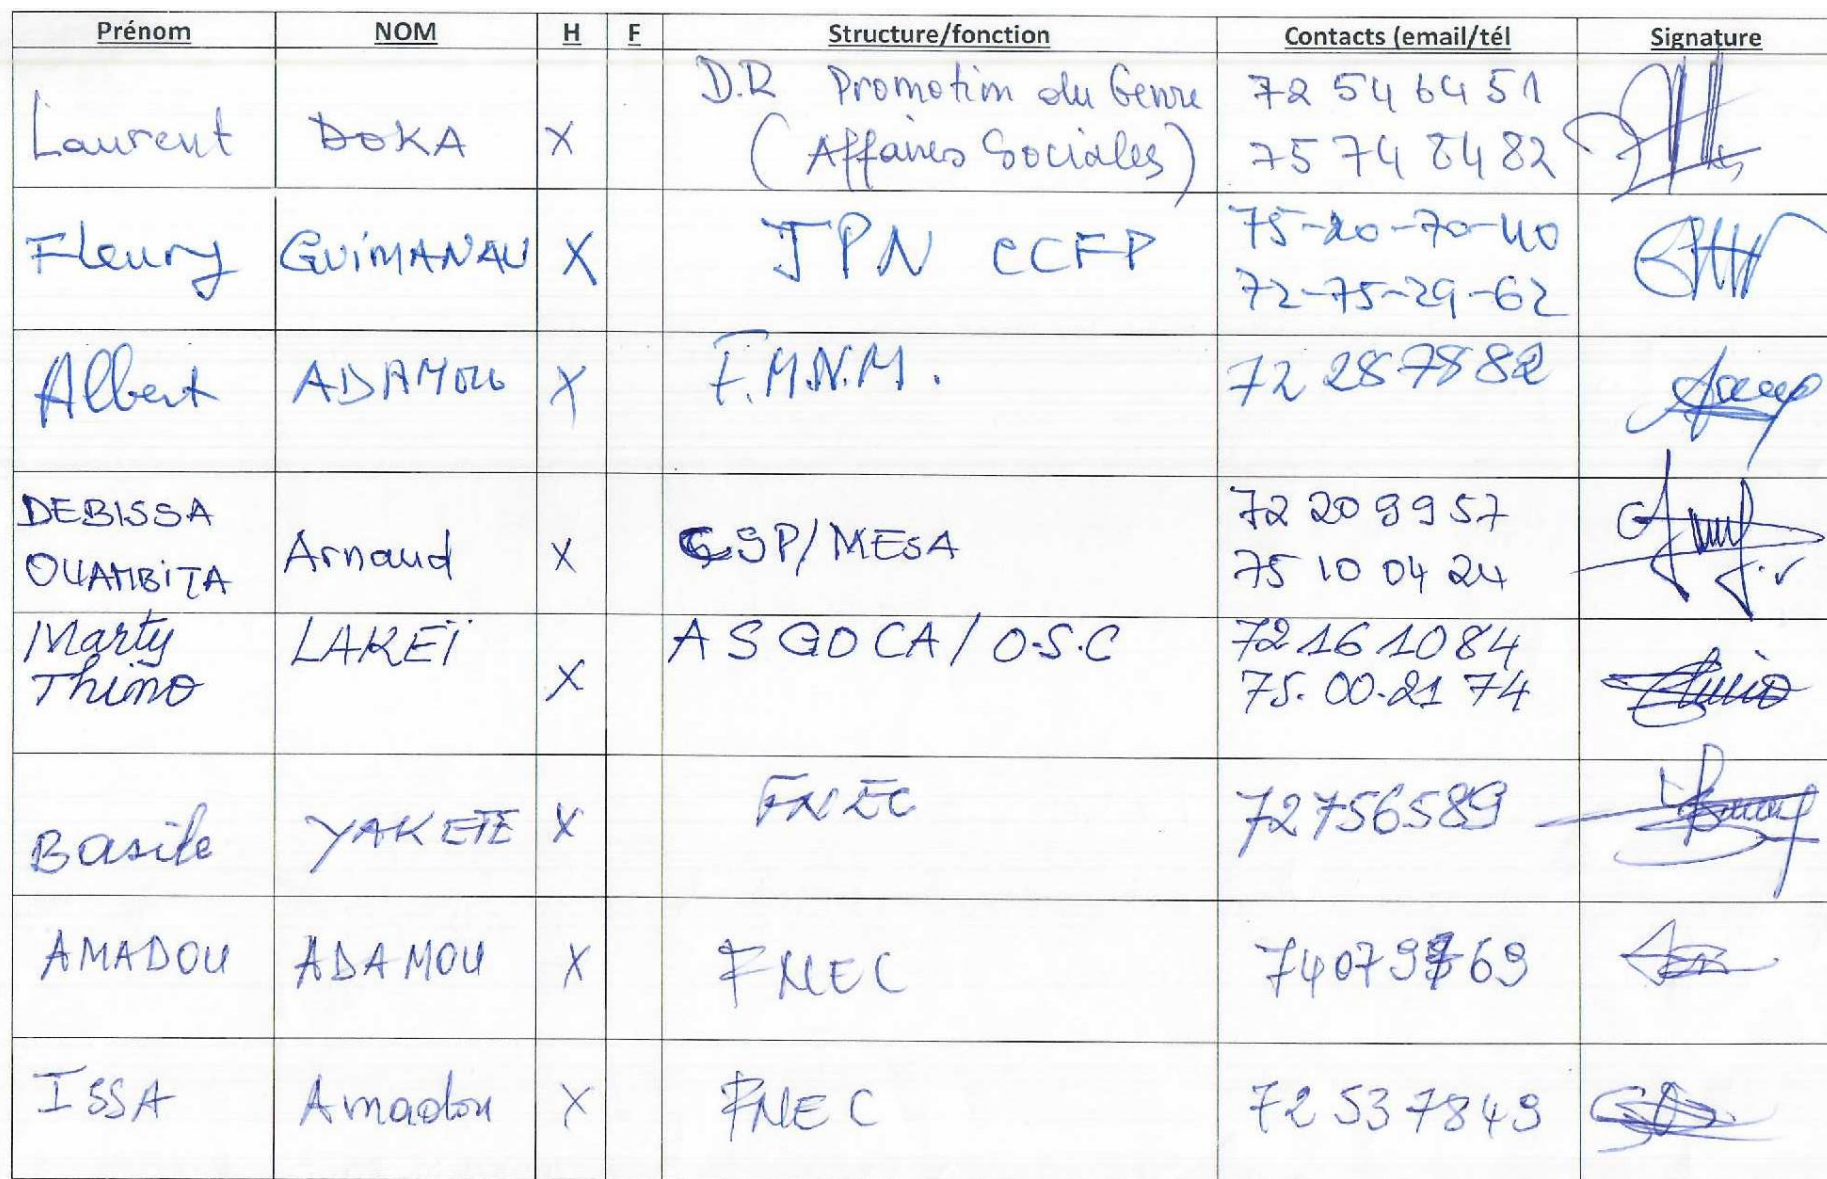 Prénom NOM H F Structure/fonction Contacts (email/tél Signature
Laurent DOKA X D.R Promotion du Genre (Affaires Sociales) 72 54 64 51
75 74 84 82
Fleury GUIMANAU X JPN CCFP 75-20-70-40
72-75-29-62
Albert ADAMOU X F.M.N.M. 72 28 78 82
DEBISSA OUAMBITA Arnaud X CSP/MESA 72 20 99 57
75 10 04 24
Marty Thimo LAKEÏ X ASGOCA/O.S.C 72 16 10 84
75.00.21 74
Basile YAKETE X FNEC 72756589
AMADOU ADAMOU X FNEC
ISSA Amadou X FNEC 72 53 78 49